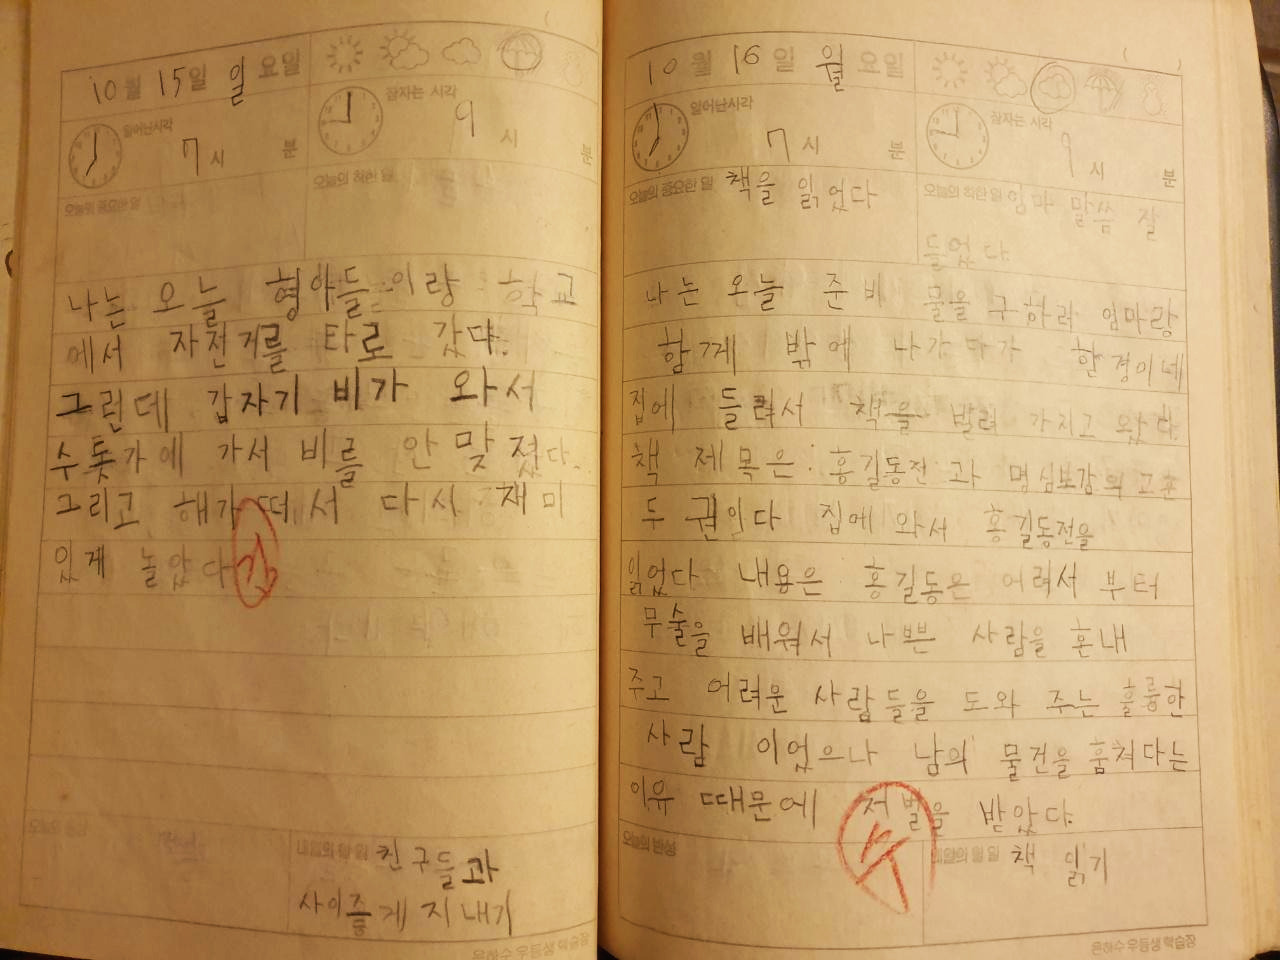 10월 15일 일요일
일어난시각
7시 분
잠자는 시각
9시 분
오늘의 중요한 일
오늘의 착한 일
나는 오늘 형아들이랑 학교
에서 자전거를 타로 갔다.
그런데 갑자기 비가 와서
수돗가에 가서 비를 안 맞졌다.
그리고 해가 떠서 다시 재미
있게 놀았다
내일의 할 일 친구들과
사이좋게 지내기
은하수 우등생 학습장
10월 16일 월요일
일어난시각
7시 분
잠자는 시각
9시 분
오늘의 중요한 일 책을 읽었다
오늘의 착한 일 엄마 말씀 잘
들었다.
나는 오늘 준비 물을 구하러 엄마랑
함께 밖에 나가다가 한경이네
집에 들려서 책을 빌려 가지고 왔다.
책 제목은 홍길동전과 명심보감의
두 권인다 집에 와서 홍길동전을
읽었다 내용은 홍길동은 어려서 부터
무술을 배워서 나쁜 사람을 혼내
주고 어려운 사람들을 도와 주는 훌륭한
사람 이었으나 남의 물건을 훔쳐다는
이유 때문에 저벌을 받았다.
오늘의 반성
내일의 할 일 책 읽기
은하수 우등생 학습장